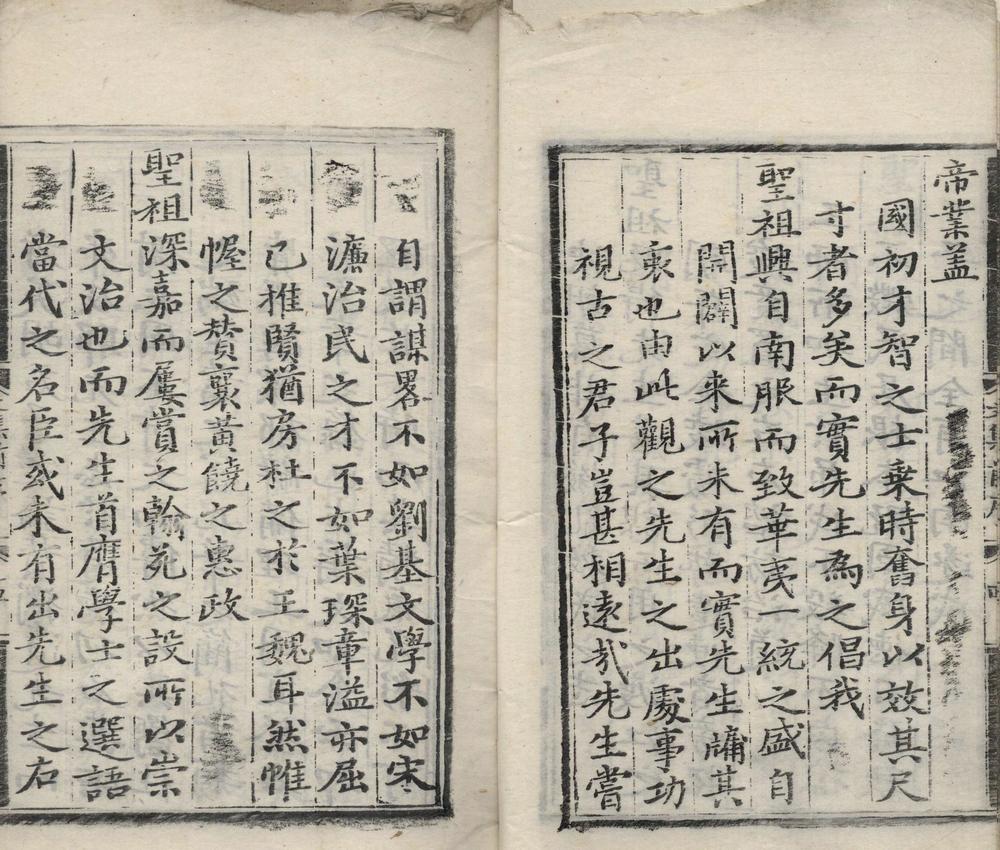 帝業蓋
國初才智之士乗時奮身以效其尺
寸者多矣而實先生為之倡我
聖祖興自南服而致華夷一統之盛自
開闢以来所未有而實先生牗其
衷也由此觀之先生之出處事功
視古之君子豈甚相逺㢤先生嘗
自謂謀畧不如劉基文學不如宋
濂治民之才不如葉琛章溢亦屈
己推賢猶房杜之於王魏耳然帷
幄之賛襄黄饒之惠政
聖祖深嘉而屢賞之翰苑之設所以崇
文治也而先生首膺學士之選語
當代之名臣或未有出先生之右